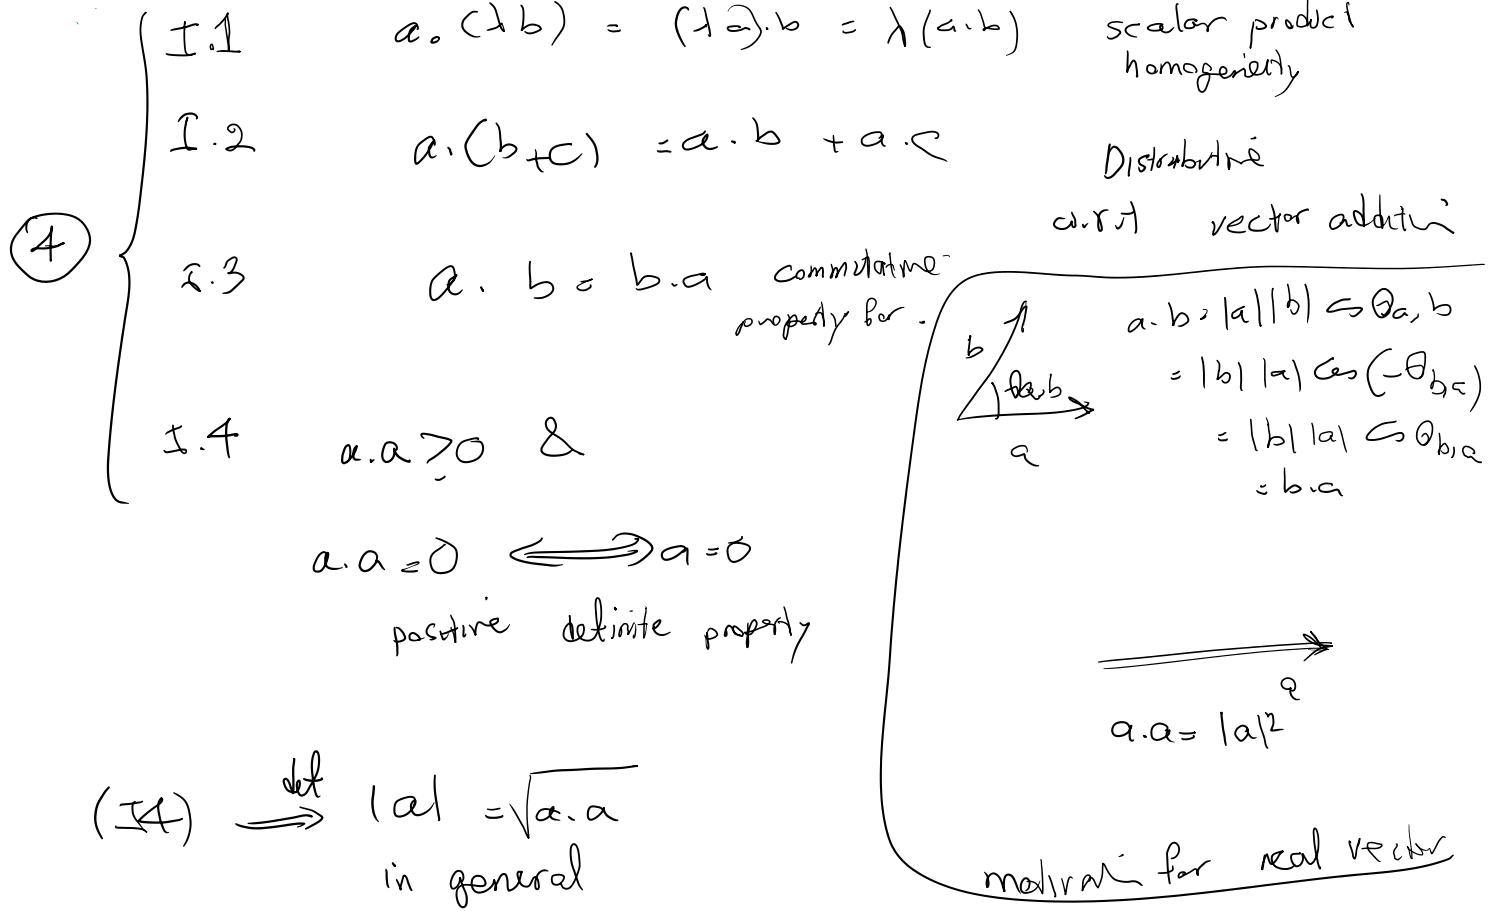 I.1 a.(λb) = (λa).b = λ(a.b) scalar product
homogenierty
I.2 a.(b+c) = a.b + a.c Distributive
w.r.t vector addition
4
I.3 a.b = b.a commutative
property for .
I.4 a.a ≥ 0 &
a.a = 0 ⟺ a = 0
positive definite property
(I4) ⟹ def |a| = √a.a
in general
b
θa,b
a
a.b = |a||b| cos θa,b
= |b||a| cos(-θb,a)
= |b||a| cos θb,a
= b.a
a
a.a = |a|²
motivation for real vector